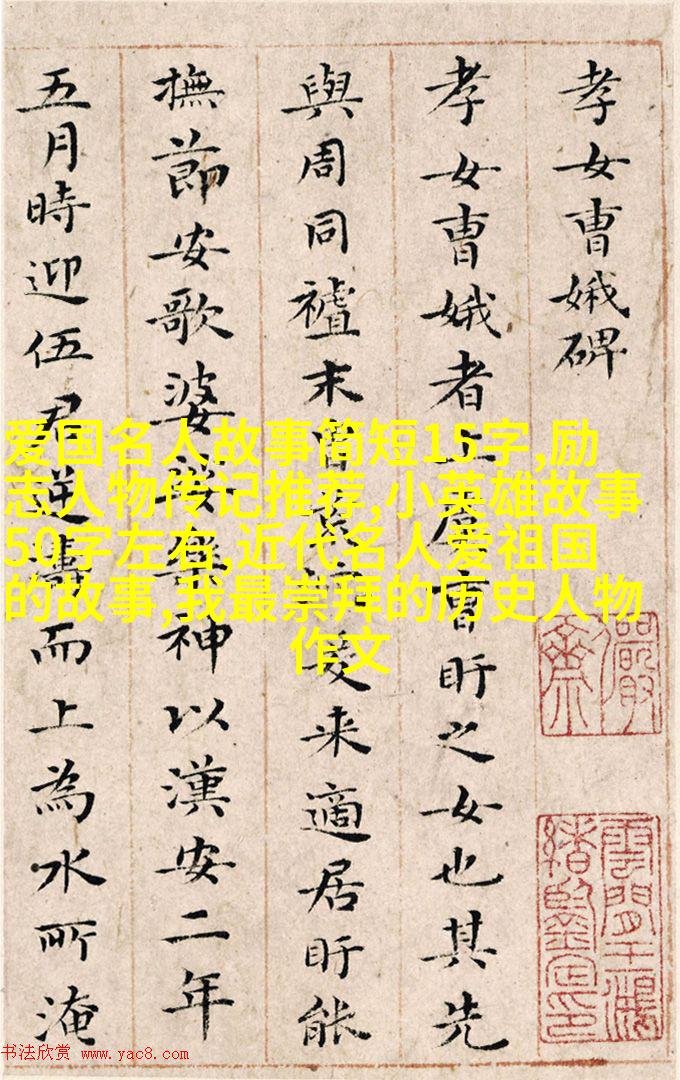 孝女曹娥碑
孝女曹娥者上虞曹盱之女也其先
與周同末胄爰来適居盱能
撫節安歌婆娑樂神以漢安二年
五月時迎伍君逆濤而上為水所淹
爱国名人故事简短15字,励
志人物传记推荐,小英雄故事
50字左右,近代名人爱祖国
的故事,我最崇拜的历史人物
作文
雲間王鴻
緒鑒定印
书法欣赏 www.yac8.com